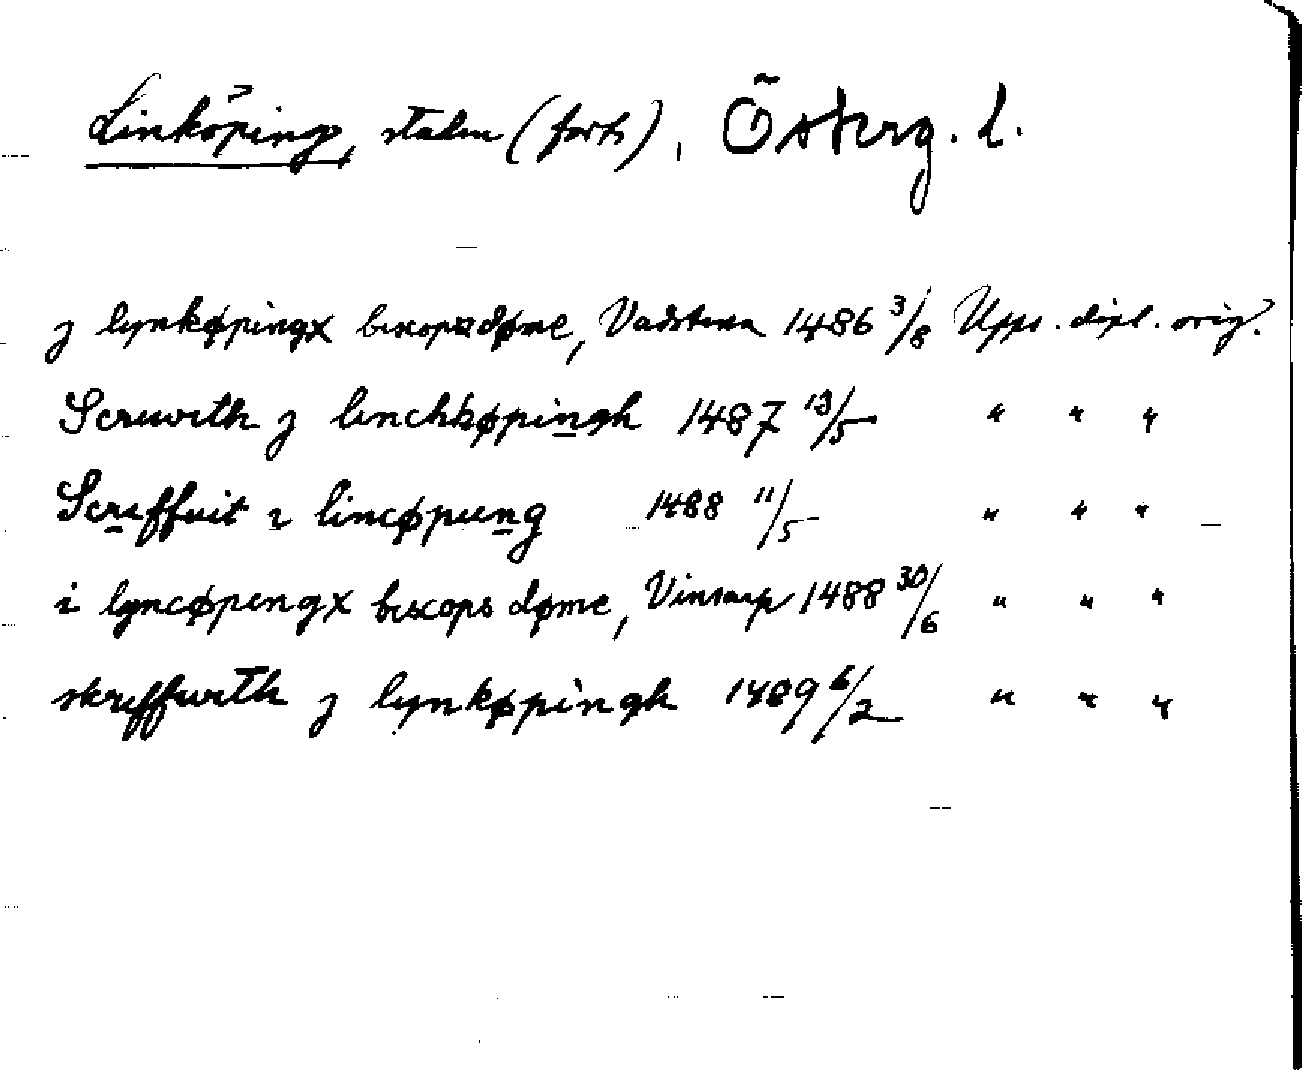 Linköping, staden (forts), Österg. l.
j lynkøpingx biscopsdøme, Vadstena 1486 3/8 Upps. dipl. orig.
Scriwith j linchkøpingh 1487 13/5 " " "
Scriffuit i lincøpung 1488 11/5 " " "
i lyncøpengx biscops døme, Vinstorp 1488 30/6 " " "
skriffwith j lynkøpingh 1489 6/2 " " "